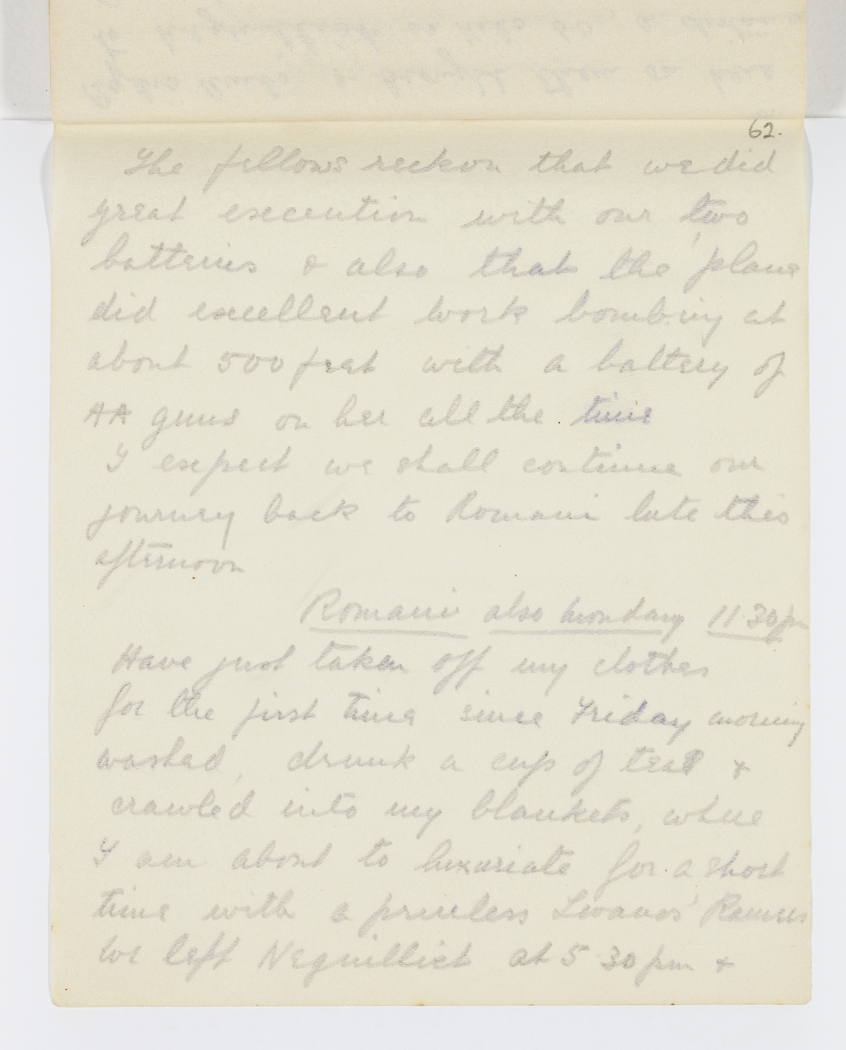 62.
The fellows reckon that we did
great execution with our two
batteries & also that the plane
did excellent work bombing at
about 500 feet with a battery of
AA guns on her all the time
I expect we shall continue our
journey back to Romani late this
afternoon
Romani also monday 11.30pm
Have just taken off my clothes
for the first time since Friday morning
washed, drunk a cup of tea &
crawled into my blankets, where
I am about to luxuriate for a short
time with a priceless
We left Neguilliet at 5 30 pm &